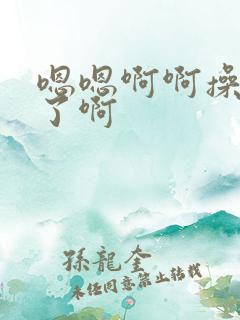 嗯嗯啊啊操
了啊
孫龍奎
未经同意禁止转载